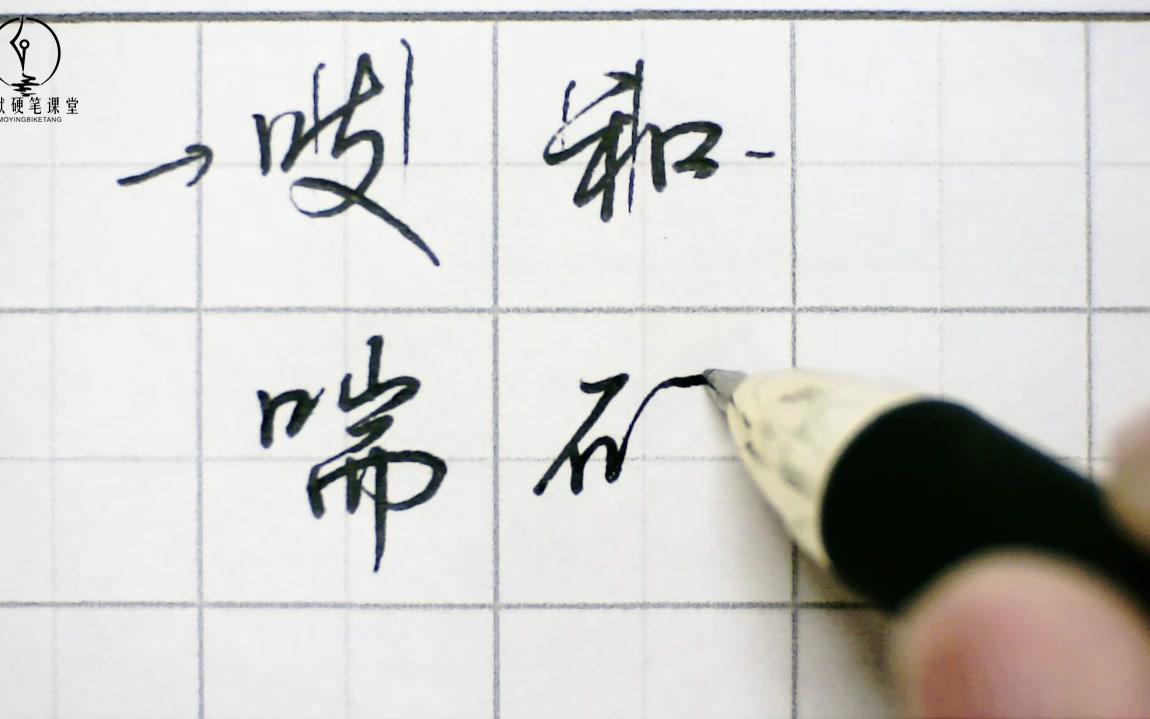 硬笔课堂
MOYINGBIKETANG
→ 吱 和 -
喘 石